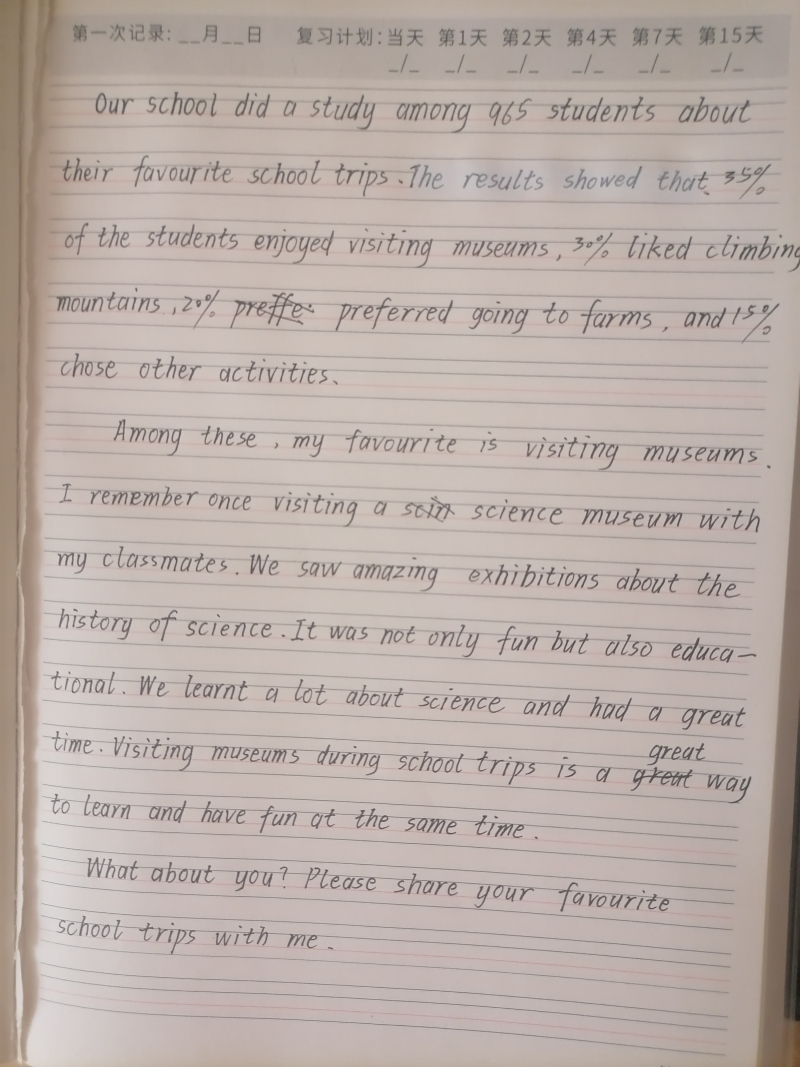 第一次记录: __月__日 复习计划: 当天 第1天 第2天 第4天 第7天 第15天
_/_ _/_ _/_ _/_ _/_ _/_
Our school did a study among 965 students about
their favourite school trips. The results showed that 35%
of the students enjoyed visiting museums, 30% liked climbing
mountains, 20% preffe preferred going to farms, and 15%
chose other activities.
Among these, my favourite is visiting museums.
I remember once visiting a scin science museum with
my classmates. We saw amazing exhibitions about the
history of science. It was not only fun but also educa-
tional. We learnt a lot about science and had a great
great
time. Visiting museums during school trips is a great way
to learn and have fun at the same time.
What about you? Please share your favourite
school trips with me.